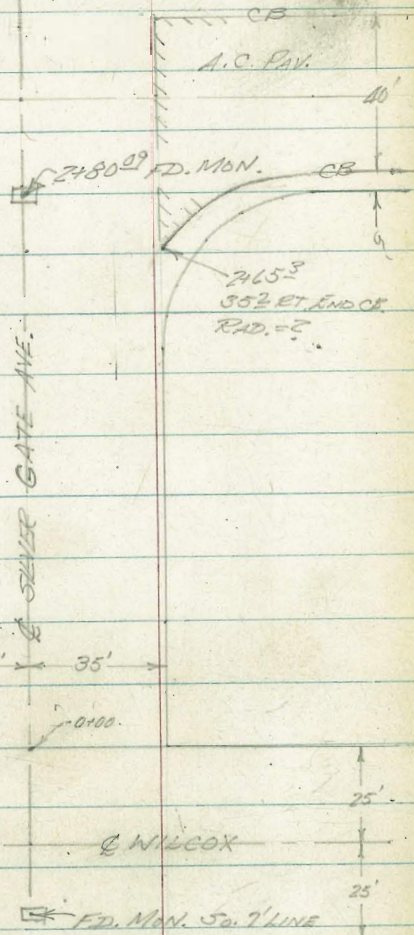 CB
A.C. PAV.
40'
2+80 09 FD. MON.
CB
2+65 3
35 2 RT. END CB.
RAD. = ?
℄ SILVER GATE AVE.
35'
0+00
25'
℄ WILCOX
25'
FD. MON. SO. 7' LINE